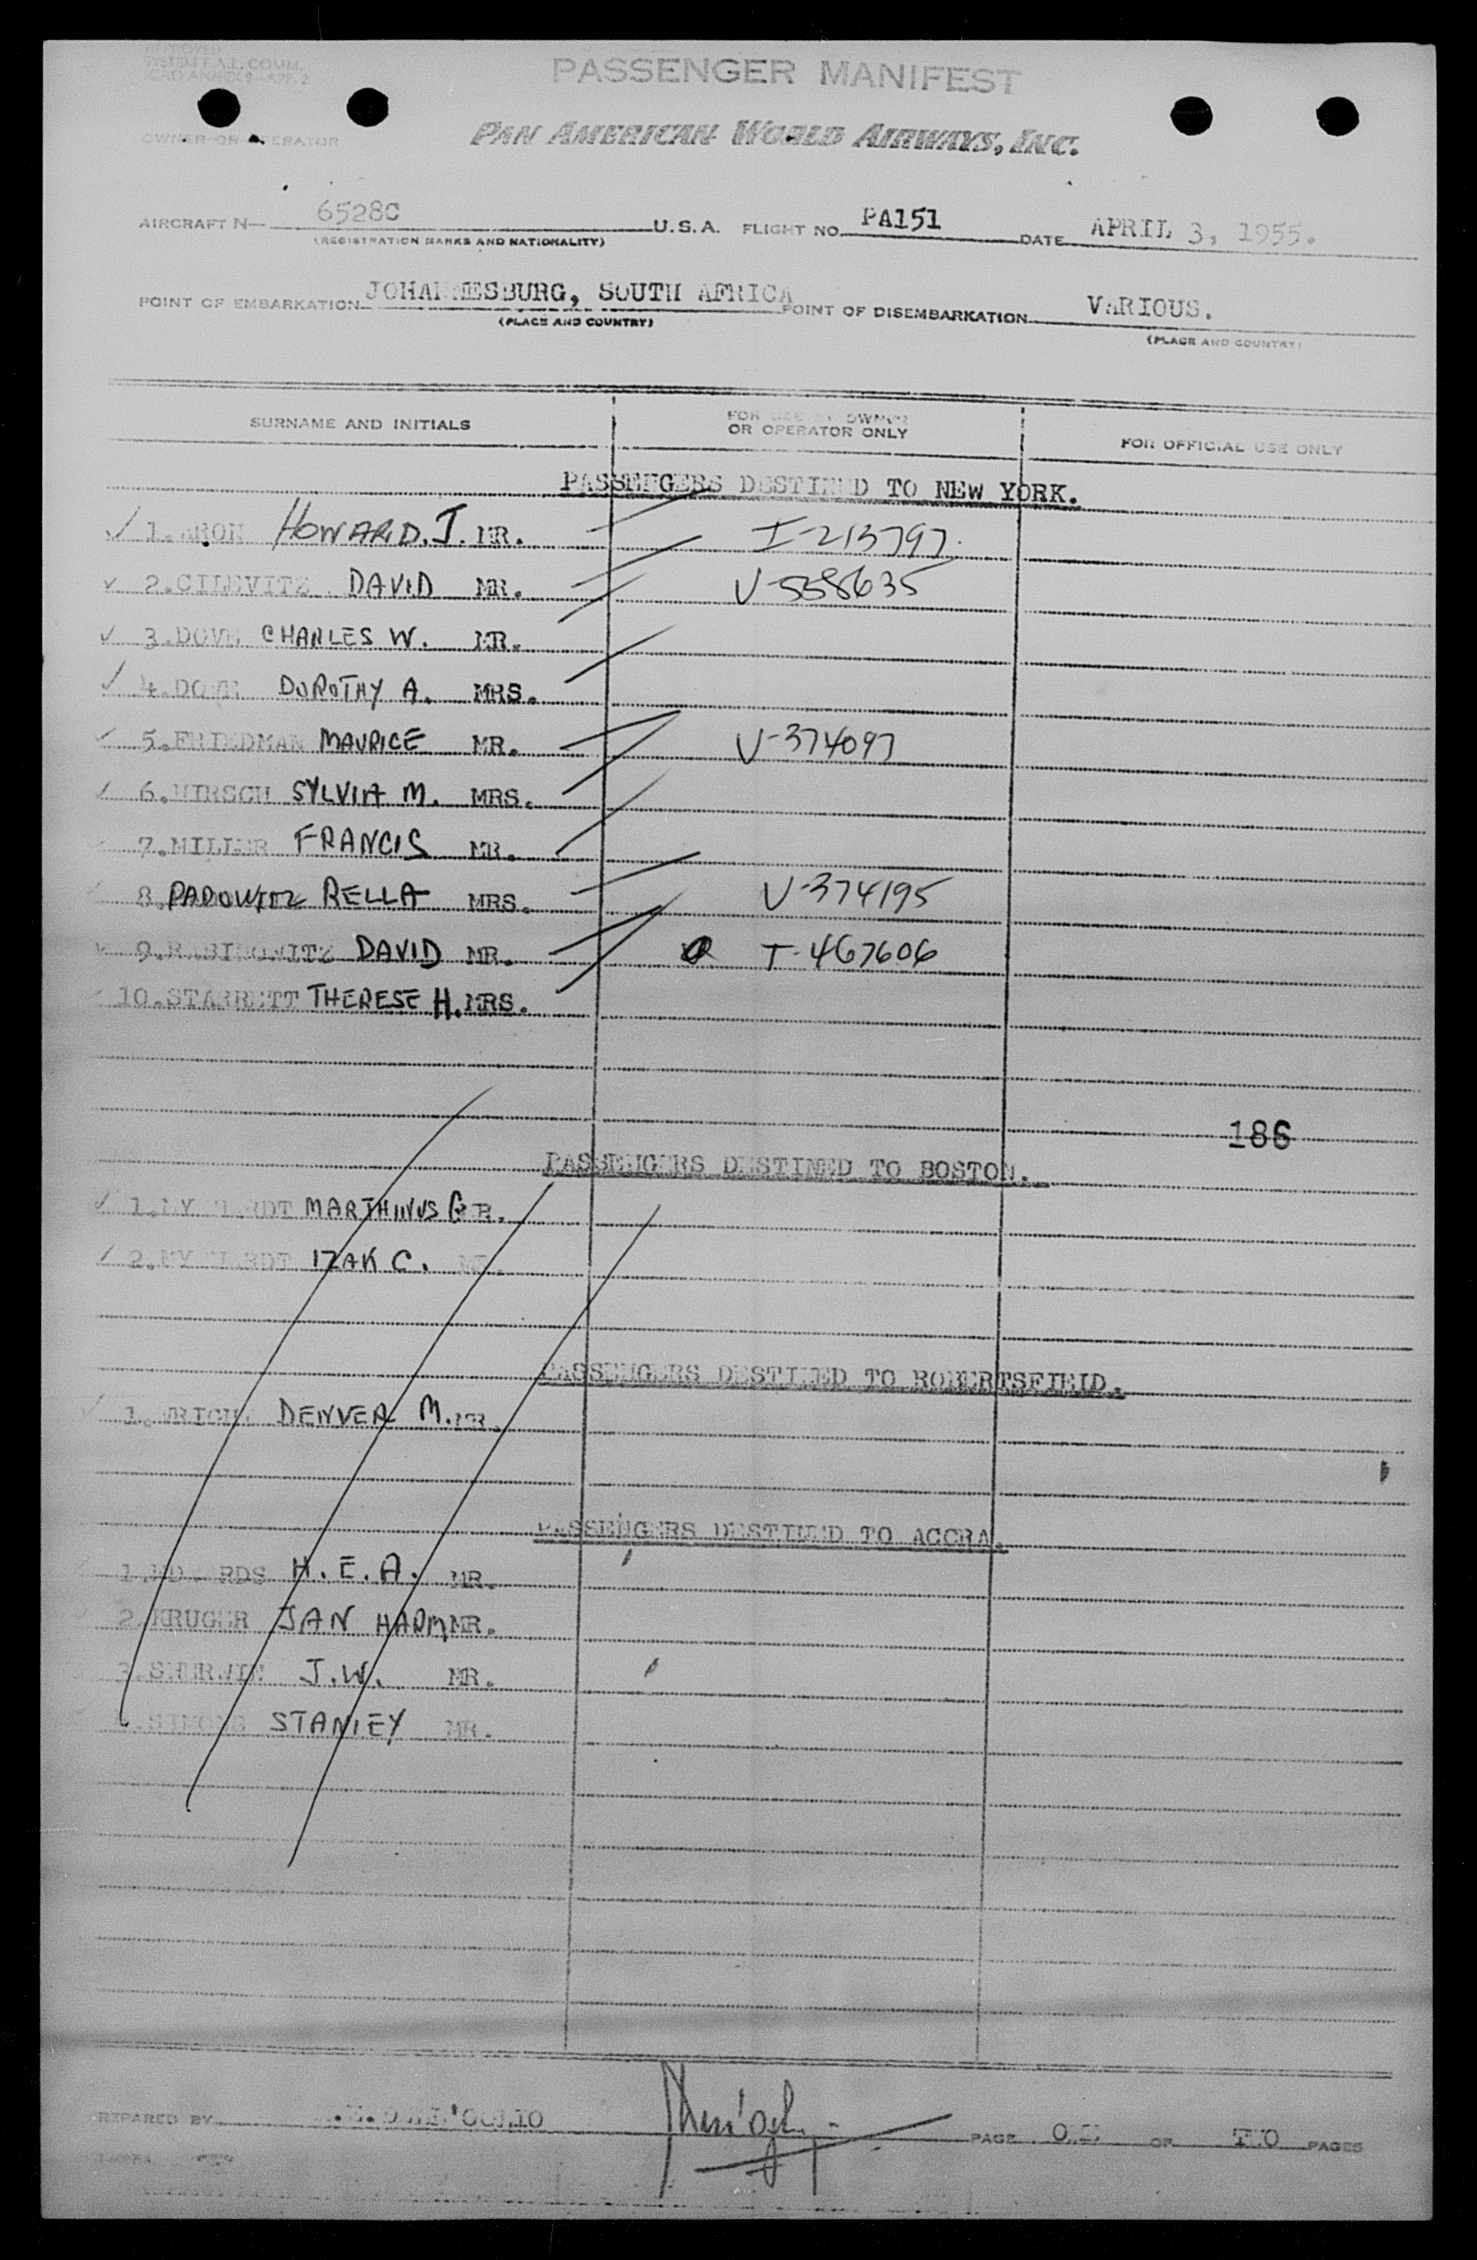 PASSENGER MANIFEST
OWNER OR OPERATOR PAN AMERICAN WORLD AIRWAYS, INC.
AIRCRAFT N— 6528C U.S.A. FLIGHT NO. PA151 DATE APRIL 3, 1955.
(REGISTRATION MARKS AND NATIONALITY)
POINT OF EMBARKATION JOHANNESBURG, SOUTH AFRICA POINT OF DISEMBARKATION VARIOUS.
(PLACE AND COUNTRY) (PLACE AND COUNTRY)
SURNAME AND INITIALS FOR USE BY OWNER OR OPERATOR ONLY FOR OFFICIAL USE ONLY
PASSENGERS DESTINED TO NEW YORK.
1. HOWARD. J. MR. I-213797.
2. CILEVITZ DAVID MR. V-558635
3. DOVE CHARLES W. MR.
4. DOVE DOROTHY A. MRS.
5. FRIEDMAN MAURICE MR. V-374097
6. HIRSCH SYLVIA M. MRS.
7. MILLER FRANCIS MR.
8. PADOWITZ RELLA MRS. V-374195
9. RABINOWITZ DAVID MR. I-467606
10. STARRETT THERESE H. MRS.
186
PASSENGERS DESTINED TO BOSTON.
1. MARTHINUS
2. IZAK C.
PASSENGERS DESTINED TO ROBERTSFIELD.
1. DENVER M. MR.
PASSENGERS DESTINED TO ACCRA.
1. H. E. A. MR.
2. KRUGER JAN HARM MR.
3. SHERWIN J.W. MR.
STANLEY MR.
PREPARED BY PAGE ONE OF TWO PAGES